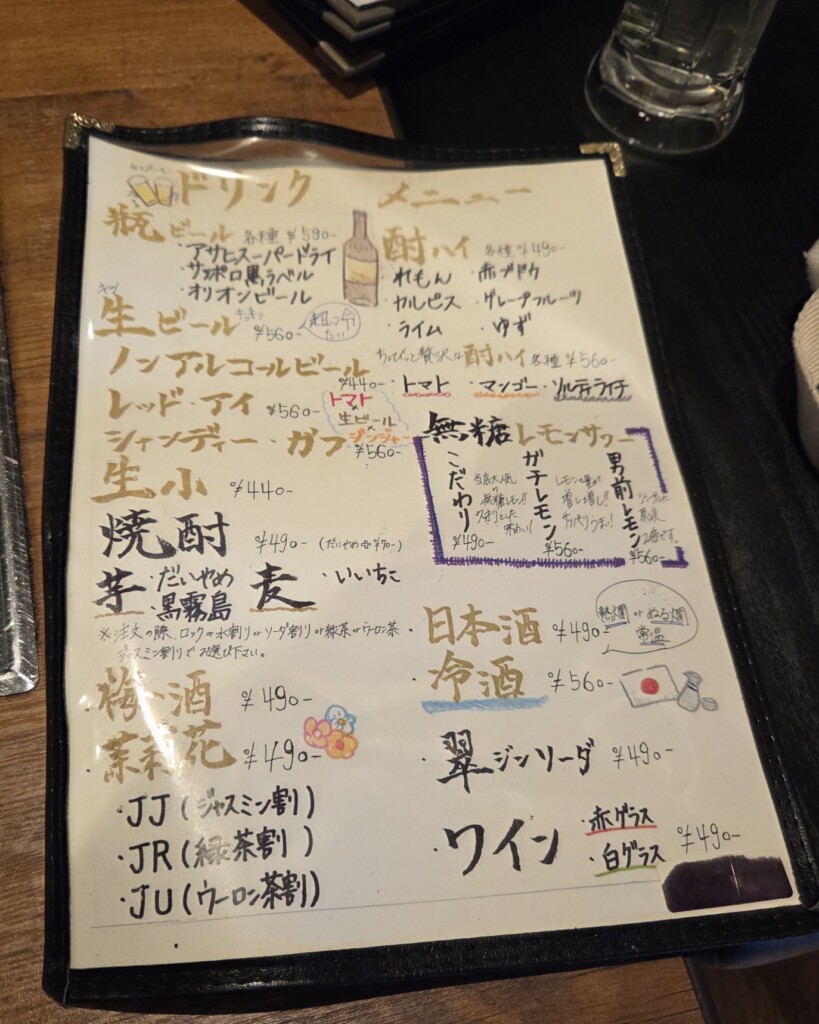 ドリンク メニュー
瓶ビール 各種 ¥590-
・アサヒスーパードライ
・サッポロ黒ラベル
・オリオンビール
生ビール ¥560-
超冷たい
ノンアルコールビール ¥440-
レッド・アイ ¥560-
トマト×生ビール×ジンジャー
シャンディー・ガフ ¥560-
生小 ¥440-
焼酎 ¥490-
芋 ・だいやめ
・黒霧島
麦 ・いいちこ
※注文の際、ロックor水割りorソーダ割りor緑茶orウーロン茶
ジャスミン割りでお選び下さい。
梅酒 ¥490-
・茉莉花 ¥490-
・JJ(ジャスミン割)
・JR(緑茶割)
・JU(ウーロン茶割)
酎ハイ 各種 ¥490-
・れもん ・赤ブドウ
・カルピス ・グレープフルーツ
・ライム ・ゆず
ちょぴっと贅沢な酎ハイ 各種 ¥560-
・トマト ・マンゴー ・ソルティライチ
無糖レモンサワー
こだわり ¥490-
ガチレモン ¥560-
レモンの量が増し増し!!サッパリうまい!
男前レモン ¥560-
・日本酒 ¥490-
熱燗 or ぬる燗
常温
冷酒 ¥560-
・翠ジンソーダ ¥490-
・ワイン ・赤グラス
・白グラス ¥490-